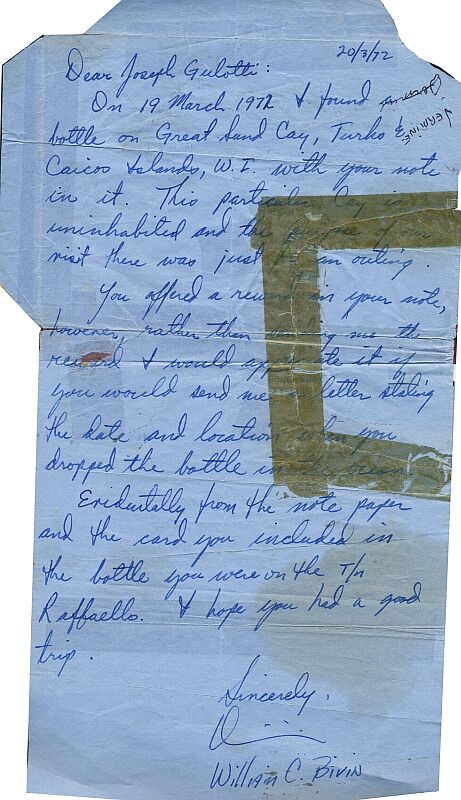 20/3/72
Dear Joseph Gulotti:
On 19 March 1972 I found a
JERMINE
bottle on Great Sand Cay, Turks &
Caicos Islands, W.I. with your note
in it. This particular Cay is
uninhabited and the purpose of our
visit there was just for an outing.
You offered a reward in your note,
however, rather than sending me the
reward I would appreciate it if
you would send me a letter stating
the date and location when you
dropped the bottle in the ocean.
Evidentally from the note paper
and the card you included in
the bottle you were on the T/n
Raffaello. I hope you had a good
trip.
Sincerely,
William C. Bivin